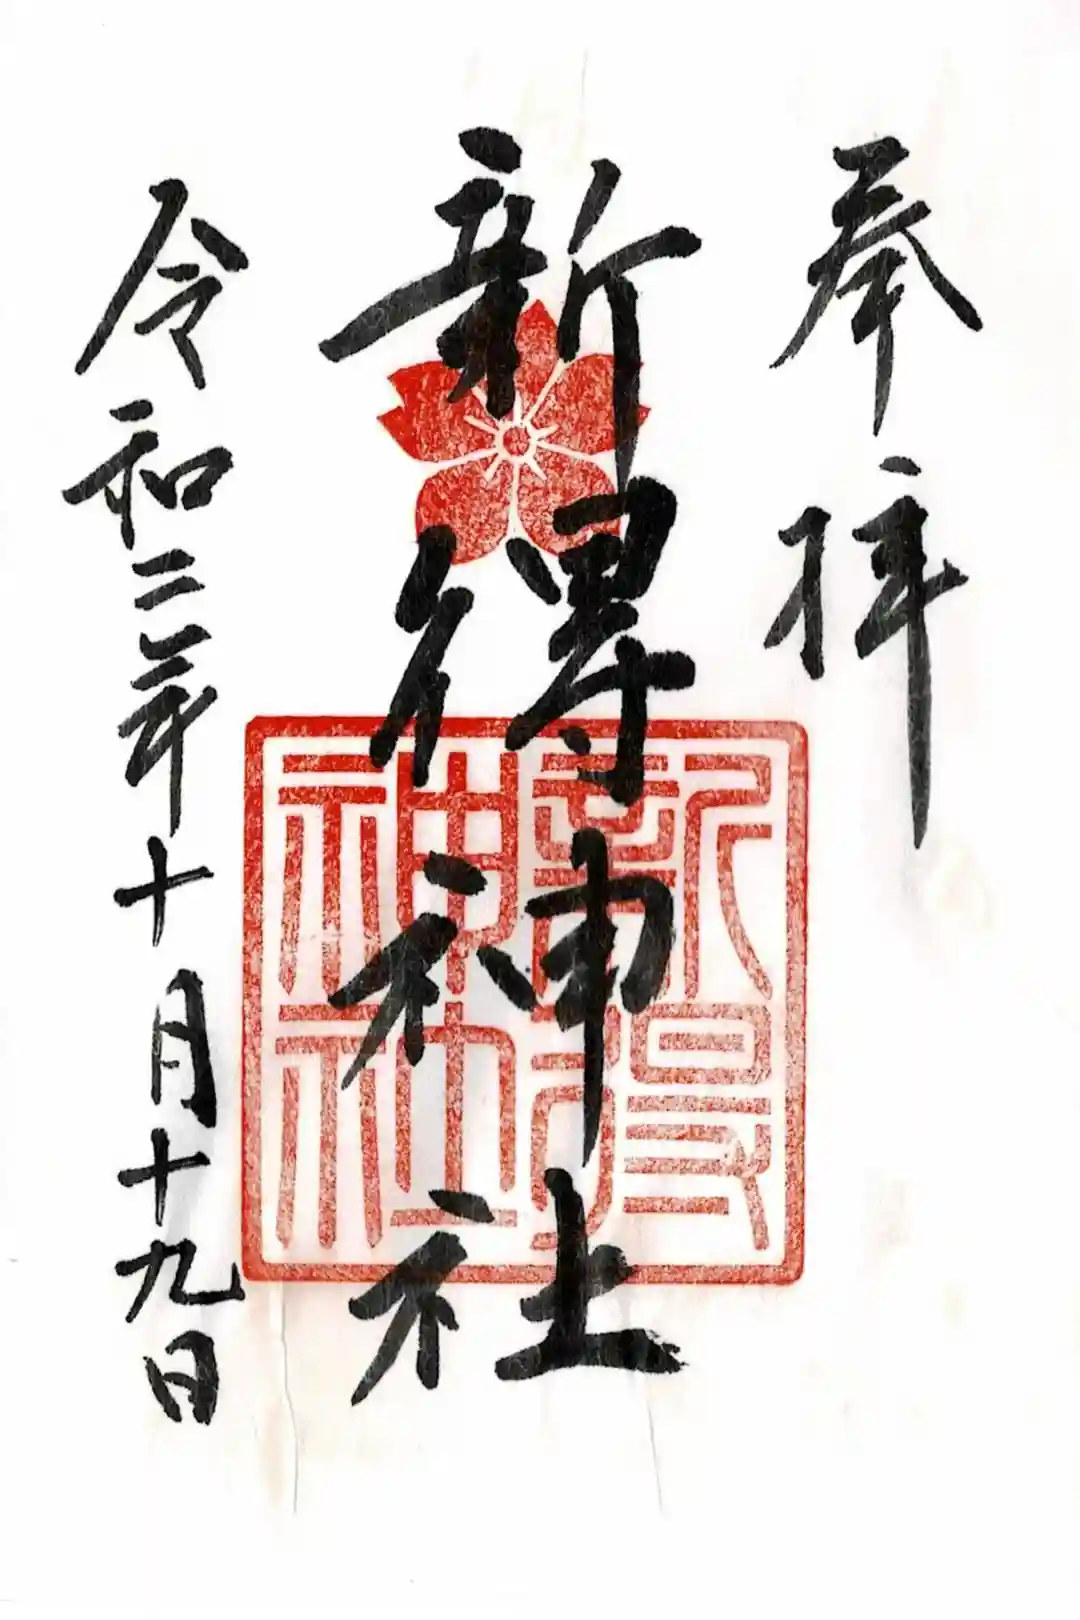 奉拝
新得神社
新得神社
令和二年十月十九日